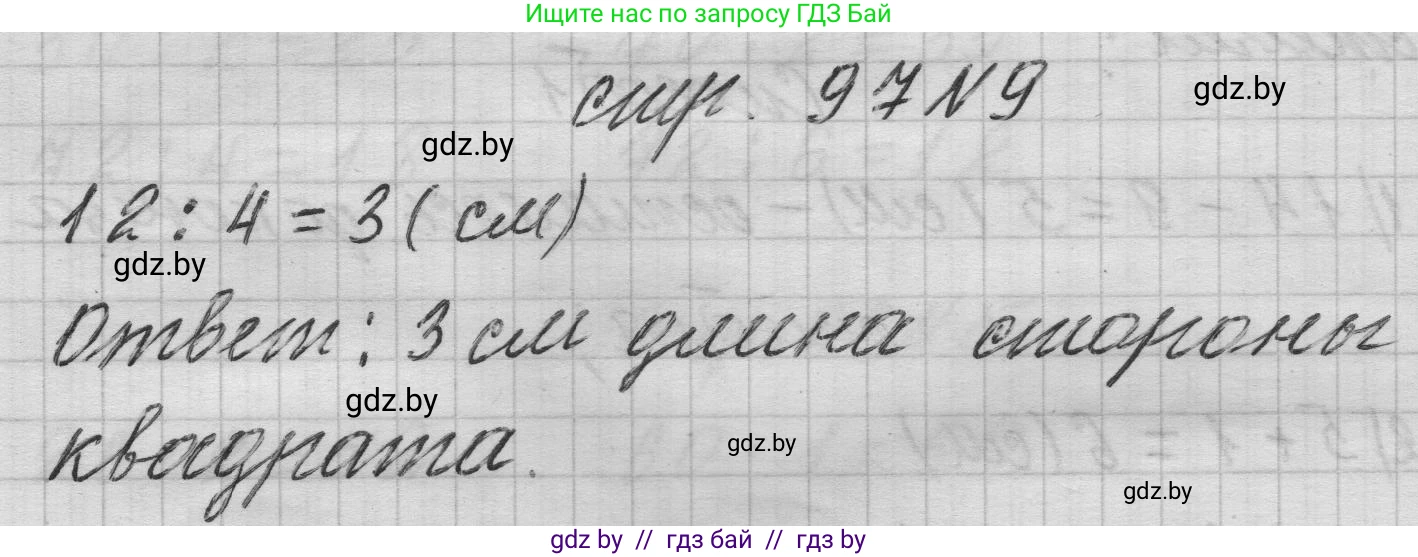 Ищите нас по запросу ГДЗ Бай
стр. 97 N 9
gdz.by
gdz.by
12 : 4 = 3 ( см)
gdz.by
Ответ : 3 см длина стороны
gdz.by
квадрата.
gdz.by
gdz.by
gdz by // гдз бай // гдз by